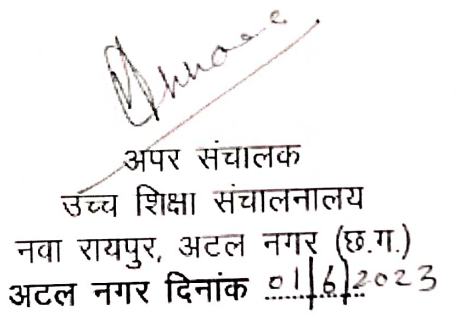 अपर संचालक
उच्च शिक्षा संचालनालय
नवा रायपुर, अटल नगर (छ.ग.)
अटल नगर दिनांक 01/6/2023